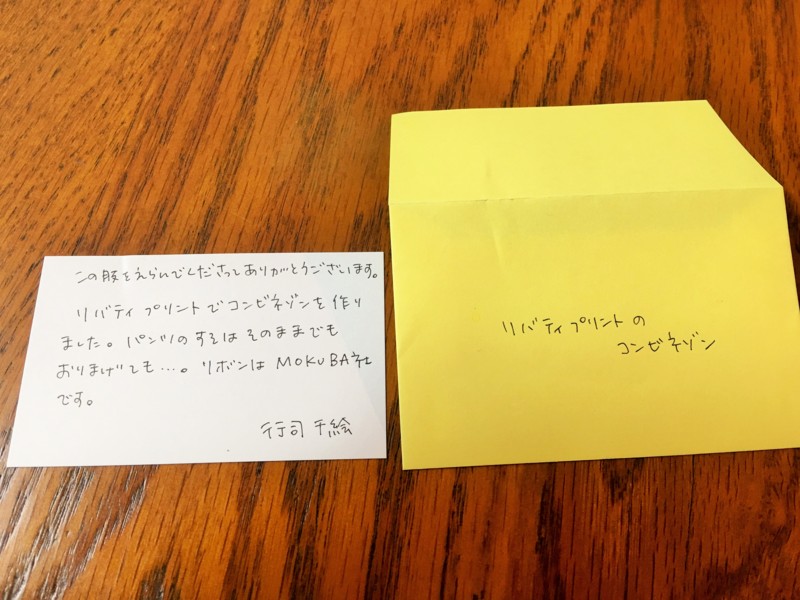 この服をえらんでくださってありがとうございます。
リバティプリントでコンビネゾンを作り
ました。パンツのすそはそのままでも
おりまげても…。リボンはMOKUBA社
です。
行司千絵
リバティプリントの
コンビネゾン